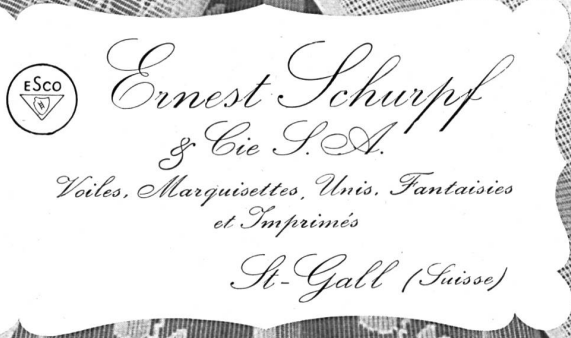 ESCO
Ernest Schurpf
& Cie S. A.
Voiles, Marquisettes, Unis, Fantaisies
et Imprimés
St-Gall (Suisse)